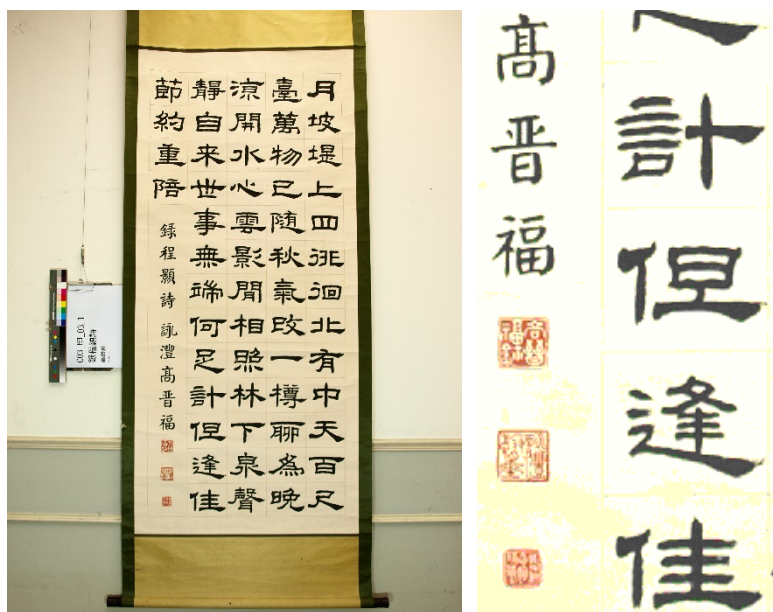 月坡堤上四徘徊北有中天百尺
臺萬物已隨秋氣改一樽聊爲晚
涼開水心雲影閒相照林下泉聲
靜自来世事無端何足計但逢佳
節約重陪
錄程顥詩 詠灃髙晋福
計但逢佳
髙晋福